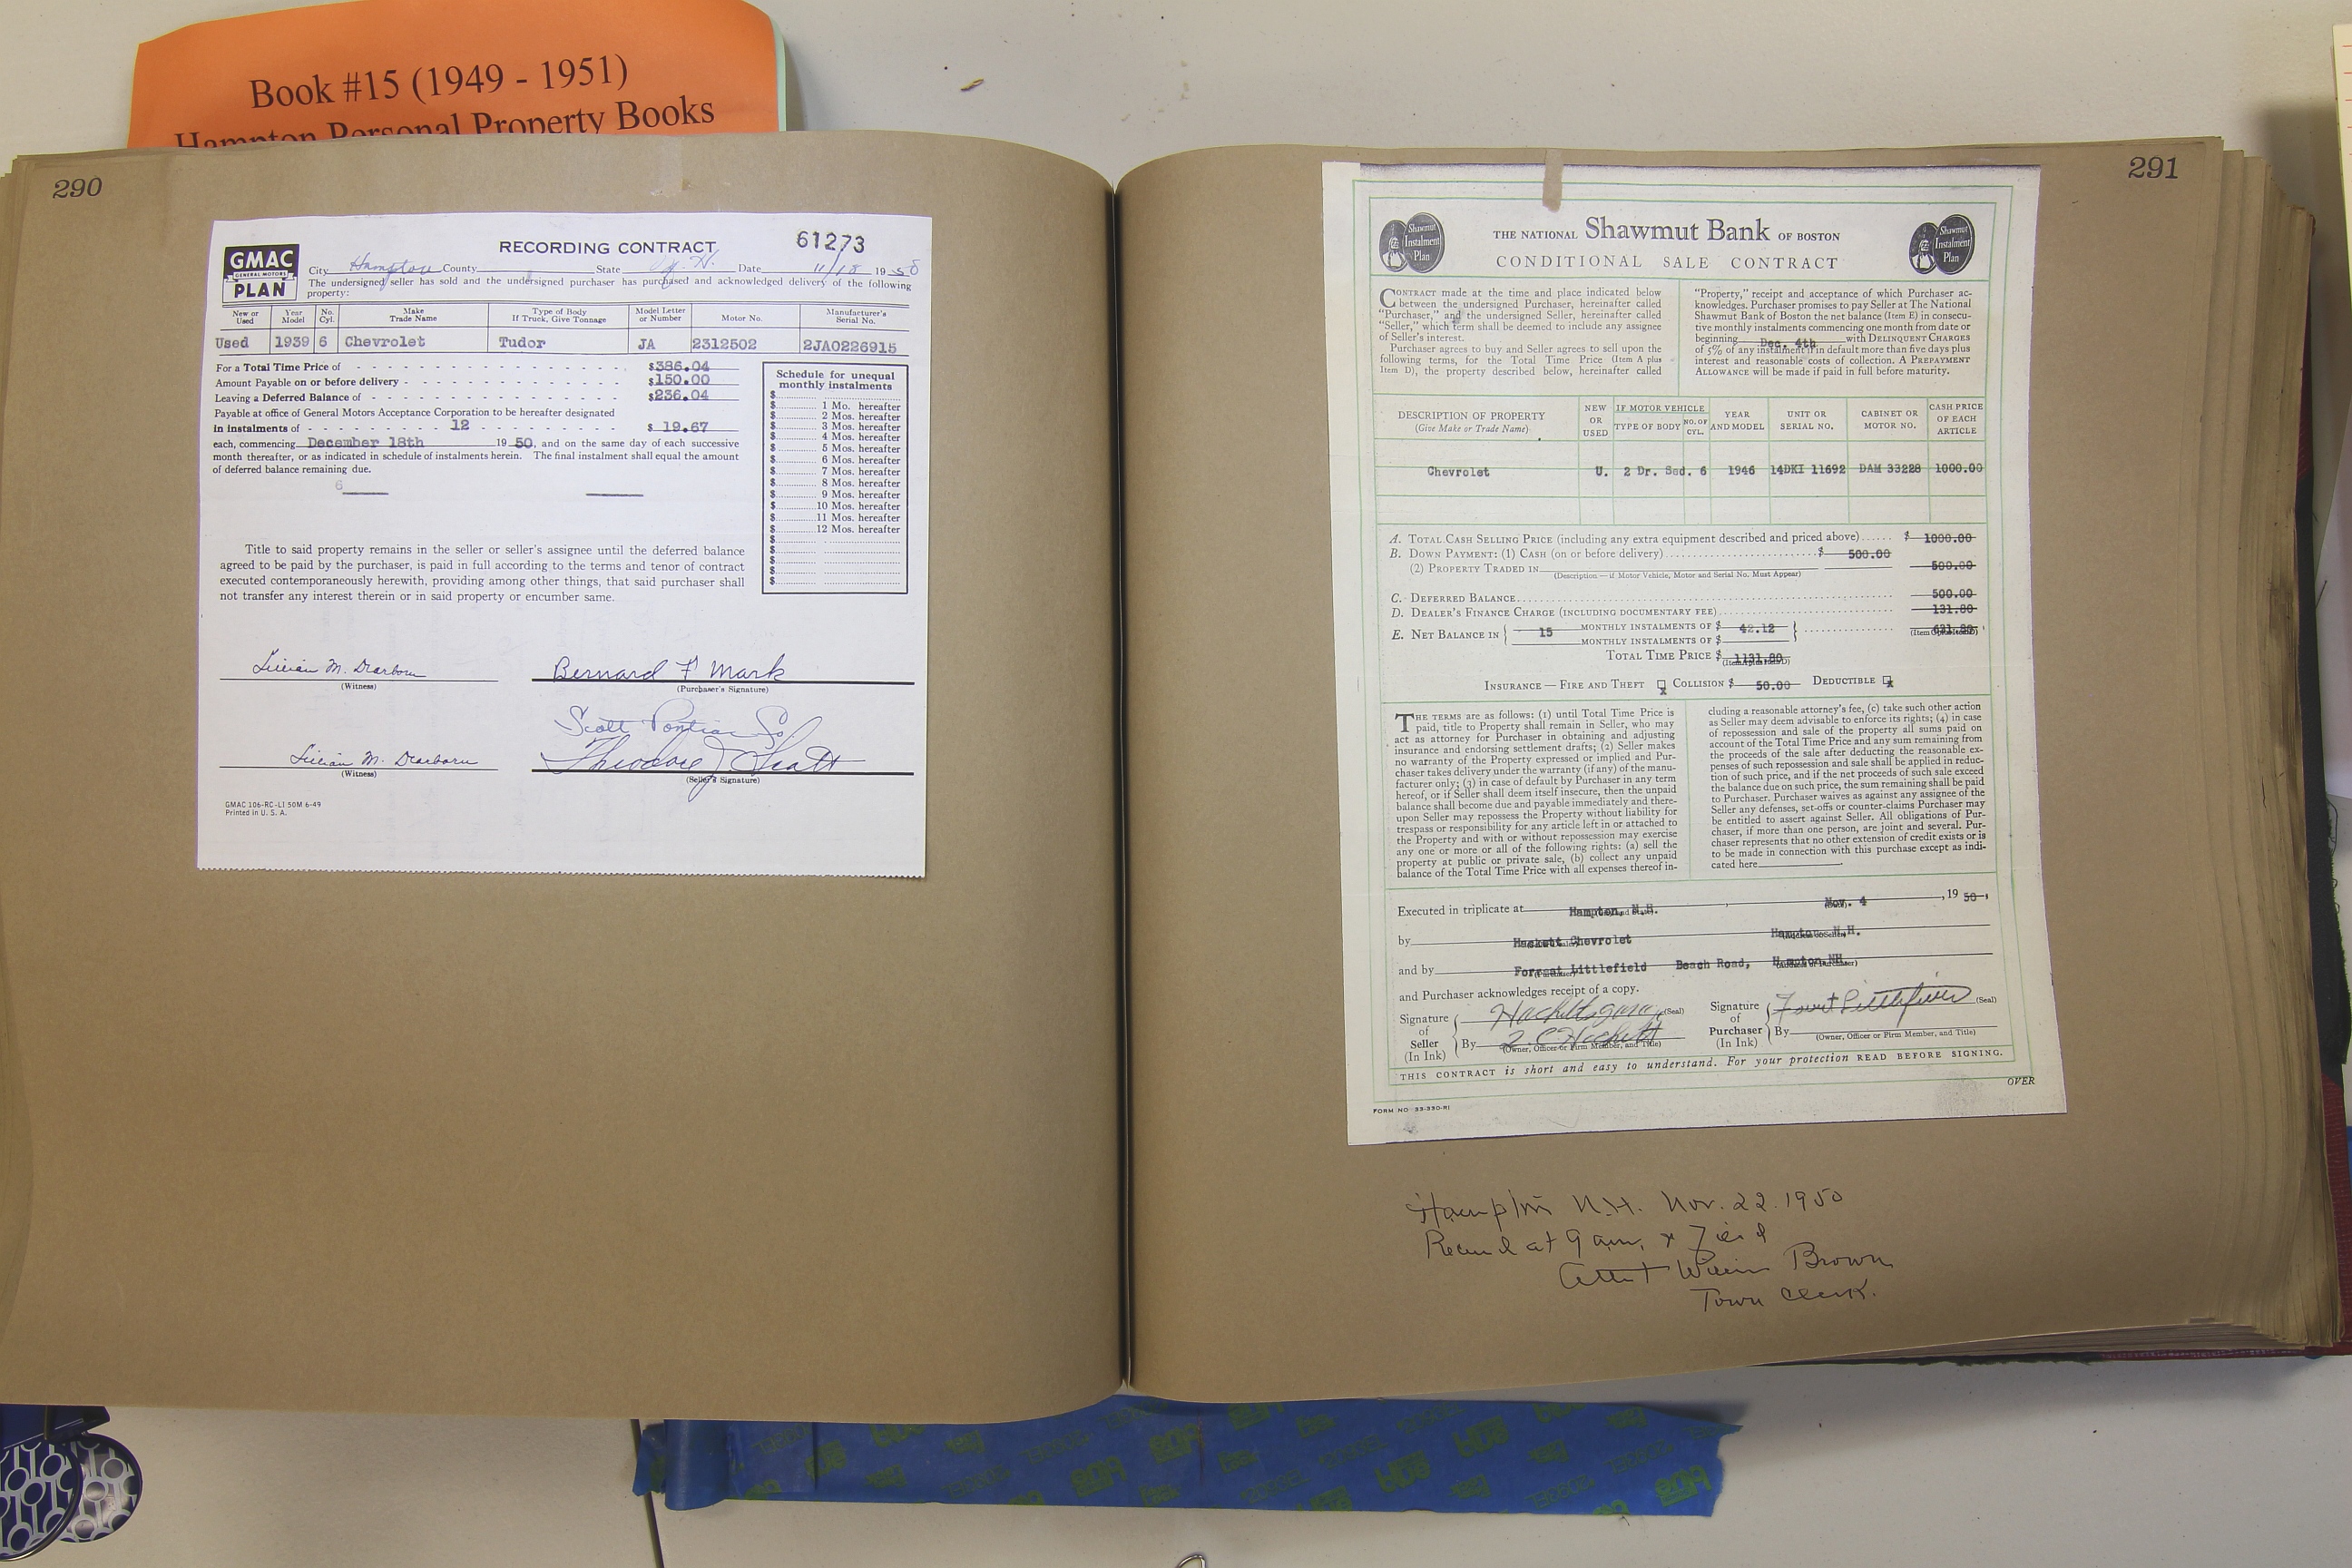 Book #15 (1949 - 1951)
Hampton Personal Property Books
290
GMAC
GENERAL MOTORS
PLAN
RECORDING CONTRACT
61273
City Hampton County State N. H. Date 11/18 1950
The undersigned seller has sold and the undersigned purchaser has purchased and acknowledged delivery of the following
property:
New or Used | Year Model | No. Cyl. | Make Trade Name | Type of Body If Truck, Give Tonnage | Model Letter or Number | Motor No. | Manufacturer's Serial No.
Used 1939 6 Chevrolet Tudor JA 2312502 2JA0226915
For a Total Time Price of $386.04
Amount Payable on or before delivery $150.00
Leaving a Deferred Balance of $236.04
Payable at office of General Motors Acceptance Corporation to be hereafter designated
in instalments of 12 $ 19.67
each, commencing December 18th 19 50, and on the same day of each successive
month thereafter, or as indicated in schedule of instalments herein. The final instalment shall equal the amount
of deferred balance remaining due.
6
Schedule for unequal
monthly instalments
$
$ 1 Mo. hereafter
$ 2 Mos. hereafter
$ 3 Mos. hereafter
$ 4 Mos. hereafter
$ 5 Mos. hereafter
$ 6 Mos. hereafter
$ 7 Mos. hereafter
$ 8 Mos. hereafter
$ 9 Mos. hereafter
$ 10 Mos. hereafter
$ 11 Mos. hereafter
$ 12 Mos. hereafter
$
$
$
$
$
Title to said property remains in the seller or seller's assignee until the deferred balance
agreed to be paid by the purchaser, is paid in full according to the terms and tenor of contract
executed contemporaneously herewith, providing among other things, that said purchaser shall
not transfer any interest therein or in said property or encumber same.
Lillian M. Dearborn
(Witness)
Bernard F Mark
(Purchaser's Signature)
Scott Pontiac Co
Lillian M. Dearborn
(Witness)
Theodore J Scott
(Seller's Signature)
GMAC 106-RC-LI 50M 6-49
Printed in U. S. A.
291
Shawmut Instalment Plan
THE NATIONAL Shawmut Bank OF BOSTON
CONDITIONAL SALE CONTRACT
Shawmut Instalment Plan
CONTRACT made at the time and place indicated below
between the undersigned Purchaser, hereinafter called
"Purchaser," and the undersigned Seller, hereinafter called
"Seller," which term shall be deemed to include any assignee
of Seller's interest.
Purchaser agrees to buy and Seller agrees to sell upon the
following terms, for the Total Time Price (Item A plus
Item D), the property described below, hereinafter called
"Property," receipt and acceptance of which Purchaser ac-
knowledges. Purchaser promises to pay Seller at The National
Shawmut Bank of Boston the net balance (Item E) in consecu-
tive monthly instalments commencing one month from date or
beginning Dec. 4th with DELINQUENT CHARGES
of 5% of any instalment if in default more than five days plus
interest and reasonable costs of collection. A PREPAYMENT
ALLOWANCE will be made if paid in full before maturity.
DESCRIPTION OF PROPERTY (Give Make or Trade Name) | NEW OR USED | IF MOTOR VEHICLE TYPE OF BODY NO. OF CYL. | YEAR AND MODEL | UNIT OR SERIAL NO. | CABINET OR MOTOR NO. | CASH PRICE OF EACH ARTICLE
Chevrolet U. 2 Dr. Sed. 6 1946 14DKI 11692 DAM 33228 1000.00
A. TOTAL CASH SELLING PRICE (including any extra equipment described and priced above) $ 1000.00
B. DOWN PAYMENT: (1) CASH (on or before delivery) $ 500.00
(2) PROPERTY TRADED IN 500.00
(Description — if Motor Vehicle, Motor and Serial No. Must Appear)
C. DEFERRED BALANCE 500.00
D. DEALER'S FINANCE CHARGE (INCLUDING DOCUMENTARY FEE) 131.80
E. NET BALANCE IN 15 MONTHLY INSTALMENTS OF $ 42.12 631.80
MONTHLY INSTALMENTS OF $
TOTAL TIME PRICE $ 1131.80
INSURANCE — FIRE AND THEFT x COLLISION $ 50.00 DEDUCTIBLE x
THE TERMS are as follows: (1) until Total Time Price is
paid, title to Property shall remain in Seller, who may
act as attorney for Purchaser in obtaining and adjusting
insurance and endorsing settlement drafts; (2) Seller makes
no warranty of the Property expressed or implied and Pur-
chaser takes delivery under the warranty (if any) of the manu-
facturer only; (3) in case of default by Purchaser in any term
hereof, or if Seller shall deem itself insecure, then the unpaid
balance shall become due and payable immediately and there-
upon Seller may repossess the Property without liability for
trespass or responsibility for any article left in or attached to
the Property and with or without repossession may exercise
any one or more or all of the following rights: (a) sell the
property at public or private sale, (b) collect any unpaid
balance of the Total Time Price with all expenses thereof in-
cluding a reasonable attorney's fee, (c) take such other action
as Seller may deem advisable to enforce its rights; (4) in case
of repossession and sale of the property all sums paid on
account of the Total Time Price and any sum remaining from
the proceeds of the sale after deducting the reasonable ex-
penses of such repossession and sale shall be applied in reduc-
tion of such price, and if the net proceeds of such sale exceed
the balance due on such price, the sum remaining shall be paid
to Purchaser. Purchaser waives as against any assignee of the
Seller any defenses, set-offs or counter-claims Purchaser may
be entitled to assert against Seller. All obligations of Pur-
chaser, if more than one person, are joint and several. Pur-
chaser represents that no other extension of credit exists or is
to be made in connection with this purchase except as indi-
cated here
Executed in triplicate at Hampton, N.H. , Nov. 4 , 19 50 ,
by Hackett Chevrolet Hampton N.H.
and by Forrest Littlefield Beach Road, Hampton NH
and Purchaser acknowledges receipt of a copy.
Signature of Seller (In Ink) (Seal)
By Hackett
(Owner, Officer or Firm Member, and Title)
Signature of Purchaser (In Ink) Forrest Littlefield (Seal)
By
(Owner, Officer or Firm Member, and Title)
THIS CONTRACT is short and easy to understand. For your protection READ BEFORE SIGNING.
OVER
FORM NO 33-330-RI
Hampton N.H. Nov. 22. 1950
Received at 9 am, & Filed
Attest William Brown
Town Clerk.